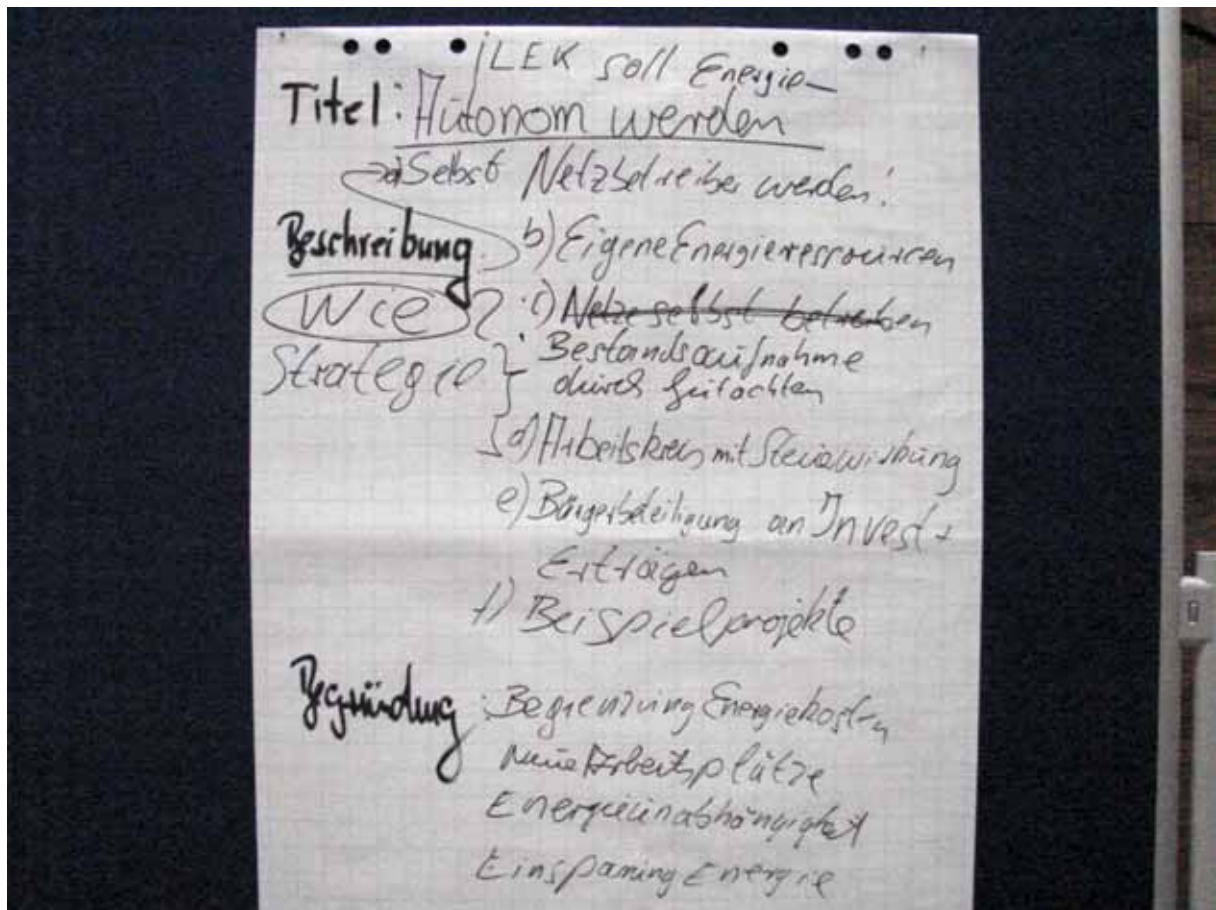 ILEK soll Energie-
Titel: Autonom werden
a) Selbst Netzbetreiber werden!
Beschreibung b) Eigene Energieressourcen
Wie? c) Netze selbst betreiben
Strategie } Bestandsaufnahme
durch Gutachten
d) Arbeitskreis mit
e) Bürgerbeteiligung an Invest +
Erträgen
f) Beispielprojekte
Begründung: Begrenzung Energiekosten
Neue Arbeitsplätze
Energieunabhängigkeit
Einsparung Energie